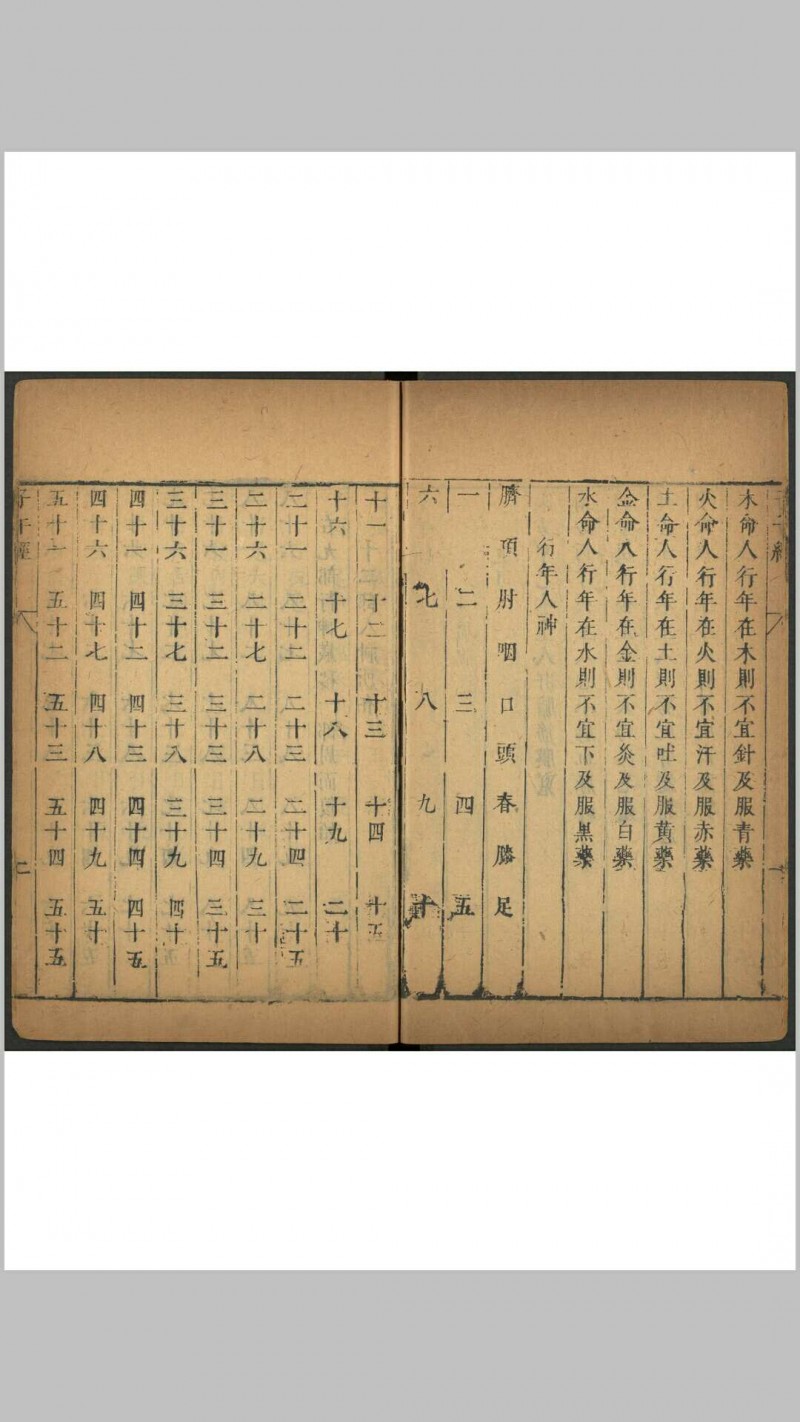 木命人行年在木則不宜針及服青藥
火命人行年在火則不宜汗及服赤藥
土命人行年在土則不宜吐及服黃藥
金命人行年在金則不宜灸及服白藥
水命人行年在水則不宜下及服黑藥
行年人神
臍項肘咽口頭脊膝足
一二三四五
六七八九十
十一十二十三十四十五
十六十七十八十九二十
二十一二十二二十三二十四二十五
二十六二十七二十八二十九三十
三十一三十二三十三三十四三十五
三十六三十七三十八三十九四十
四十一四十二四十三四十四四十五
四十六四十七四十八四十九五十
五十一五十二五十三五十四五十五
子午經 二